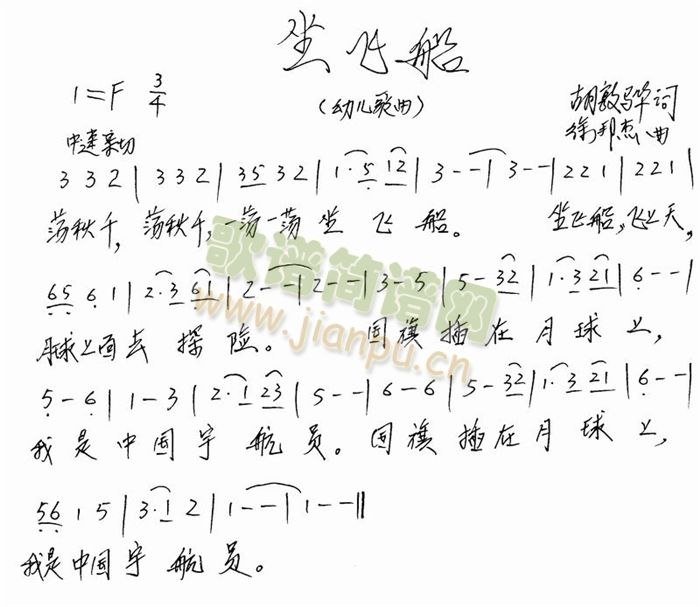 坐飞船
1=F 3/4
(幼儿歌曲)
胡敦骅词
中速亲切
徐邦杰曲
3 3 2 | 3 3 2 | 35 32 | 1·5 12 | 3 - - | 3 - - | 2 2 1 | 2 2 1 |
荡秋千，荡秋千，一荡一荡 坐 飞 船。 坐飞船，飞上天，
65 6 1 | 2·3 61 | 2 - - | 2 - - | 3 - 5 | 5 - 32 | 1·3 21 | 6 - - |
月球上面去 探 险。 国 旗 插 在 月 球 上，
5 - 6 | 1 - 3 | 2·1 23 | 5 - - | 6 - 6 | 5 - 32 | 1·3 21 | 6 - - |
我 是 中 国 宇 航 员。国 旗 插 在 月 球 上，
56 1 5 | 3·1 2 | 1 - - | 1 - - ‖
我是中国 宇 航 员。
歌谱简谱网
www.jianpu.cn